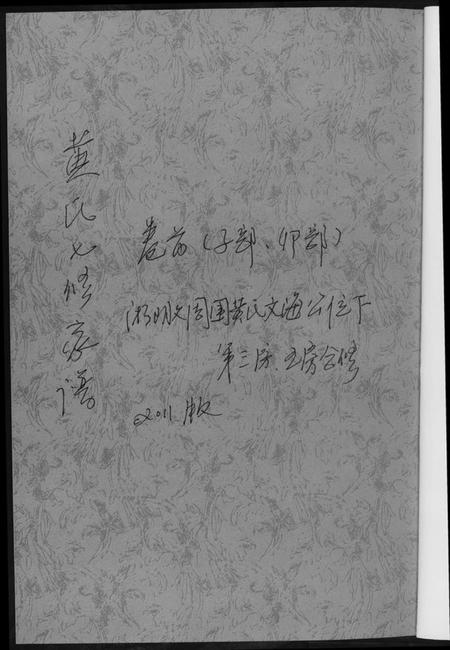 黄氏七修家谱
卷首(子部、卯部)
围黄氏文海公位下
第三房、五房合修
2011版